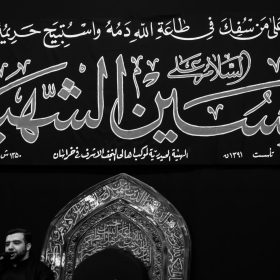 على من سفك في طاعة الله دمه واستبيح حريم
السلام على
حسين الشهيد
تأسست ١٣٩١ هـ الهيئة الحيدرية لموكب اهالي النجف الاشرف في خراسان ١٣٥٠ ش